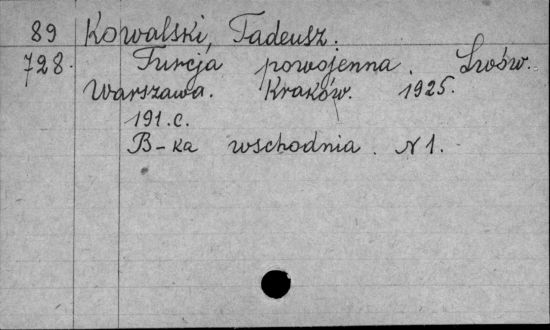 89 Kowalski, Tadeusz.
728. Turcja powojenna. Lwów.
Warszawa. Kraków. 1925.
191.c.
B-ka wschodnia. N1.